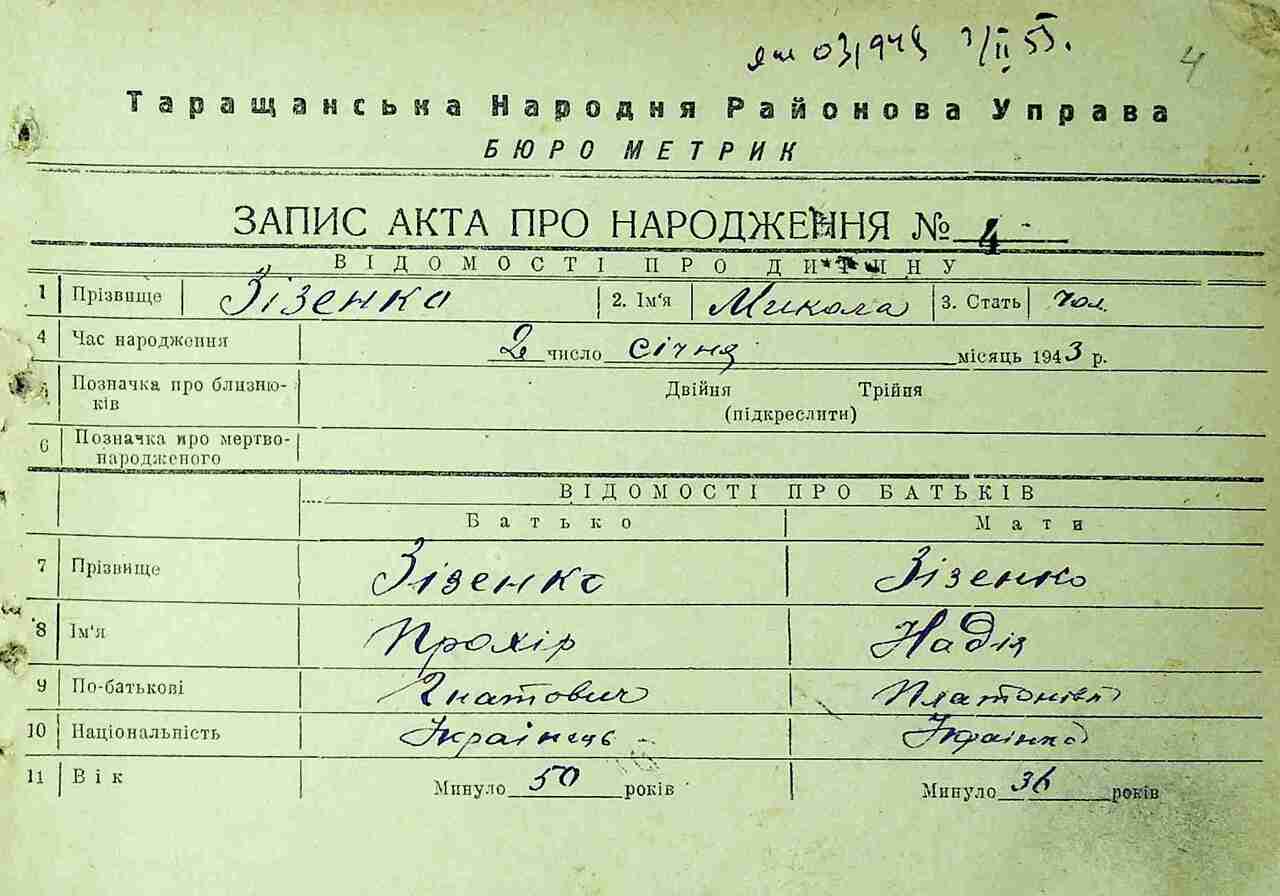 031948 7/II 55.
4
Таращанська Народня Районова Управа
БЮРО МЕТРИК
ЗАПИС АКТА ПРО НАРОДЖЕННЯ № 4
ВІДОМОСТІ ПРО ДИТИНУ
1 Прізвище Зізенко 2. Ім'я Микола 3. Стать чол.
4 Час народження 2 число січня місяць 1943 р.
5 Позначка про близню- Двійня Трійня
ків (підкреслити)
6 Позначка про мертво-
народженого
ВІДОМОСТІ ПРО БАТЬКІВ
Батько Мати
7 Прізвище Зізенко Зізенко
8 Ім'я Прохір Надія
9 По-батькові Гнатович Платонівн
10 Національність Українець Українка
11 Вік Минуло 50 років Минуло 36 років